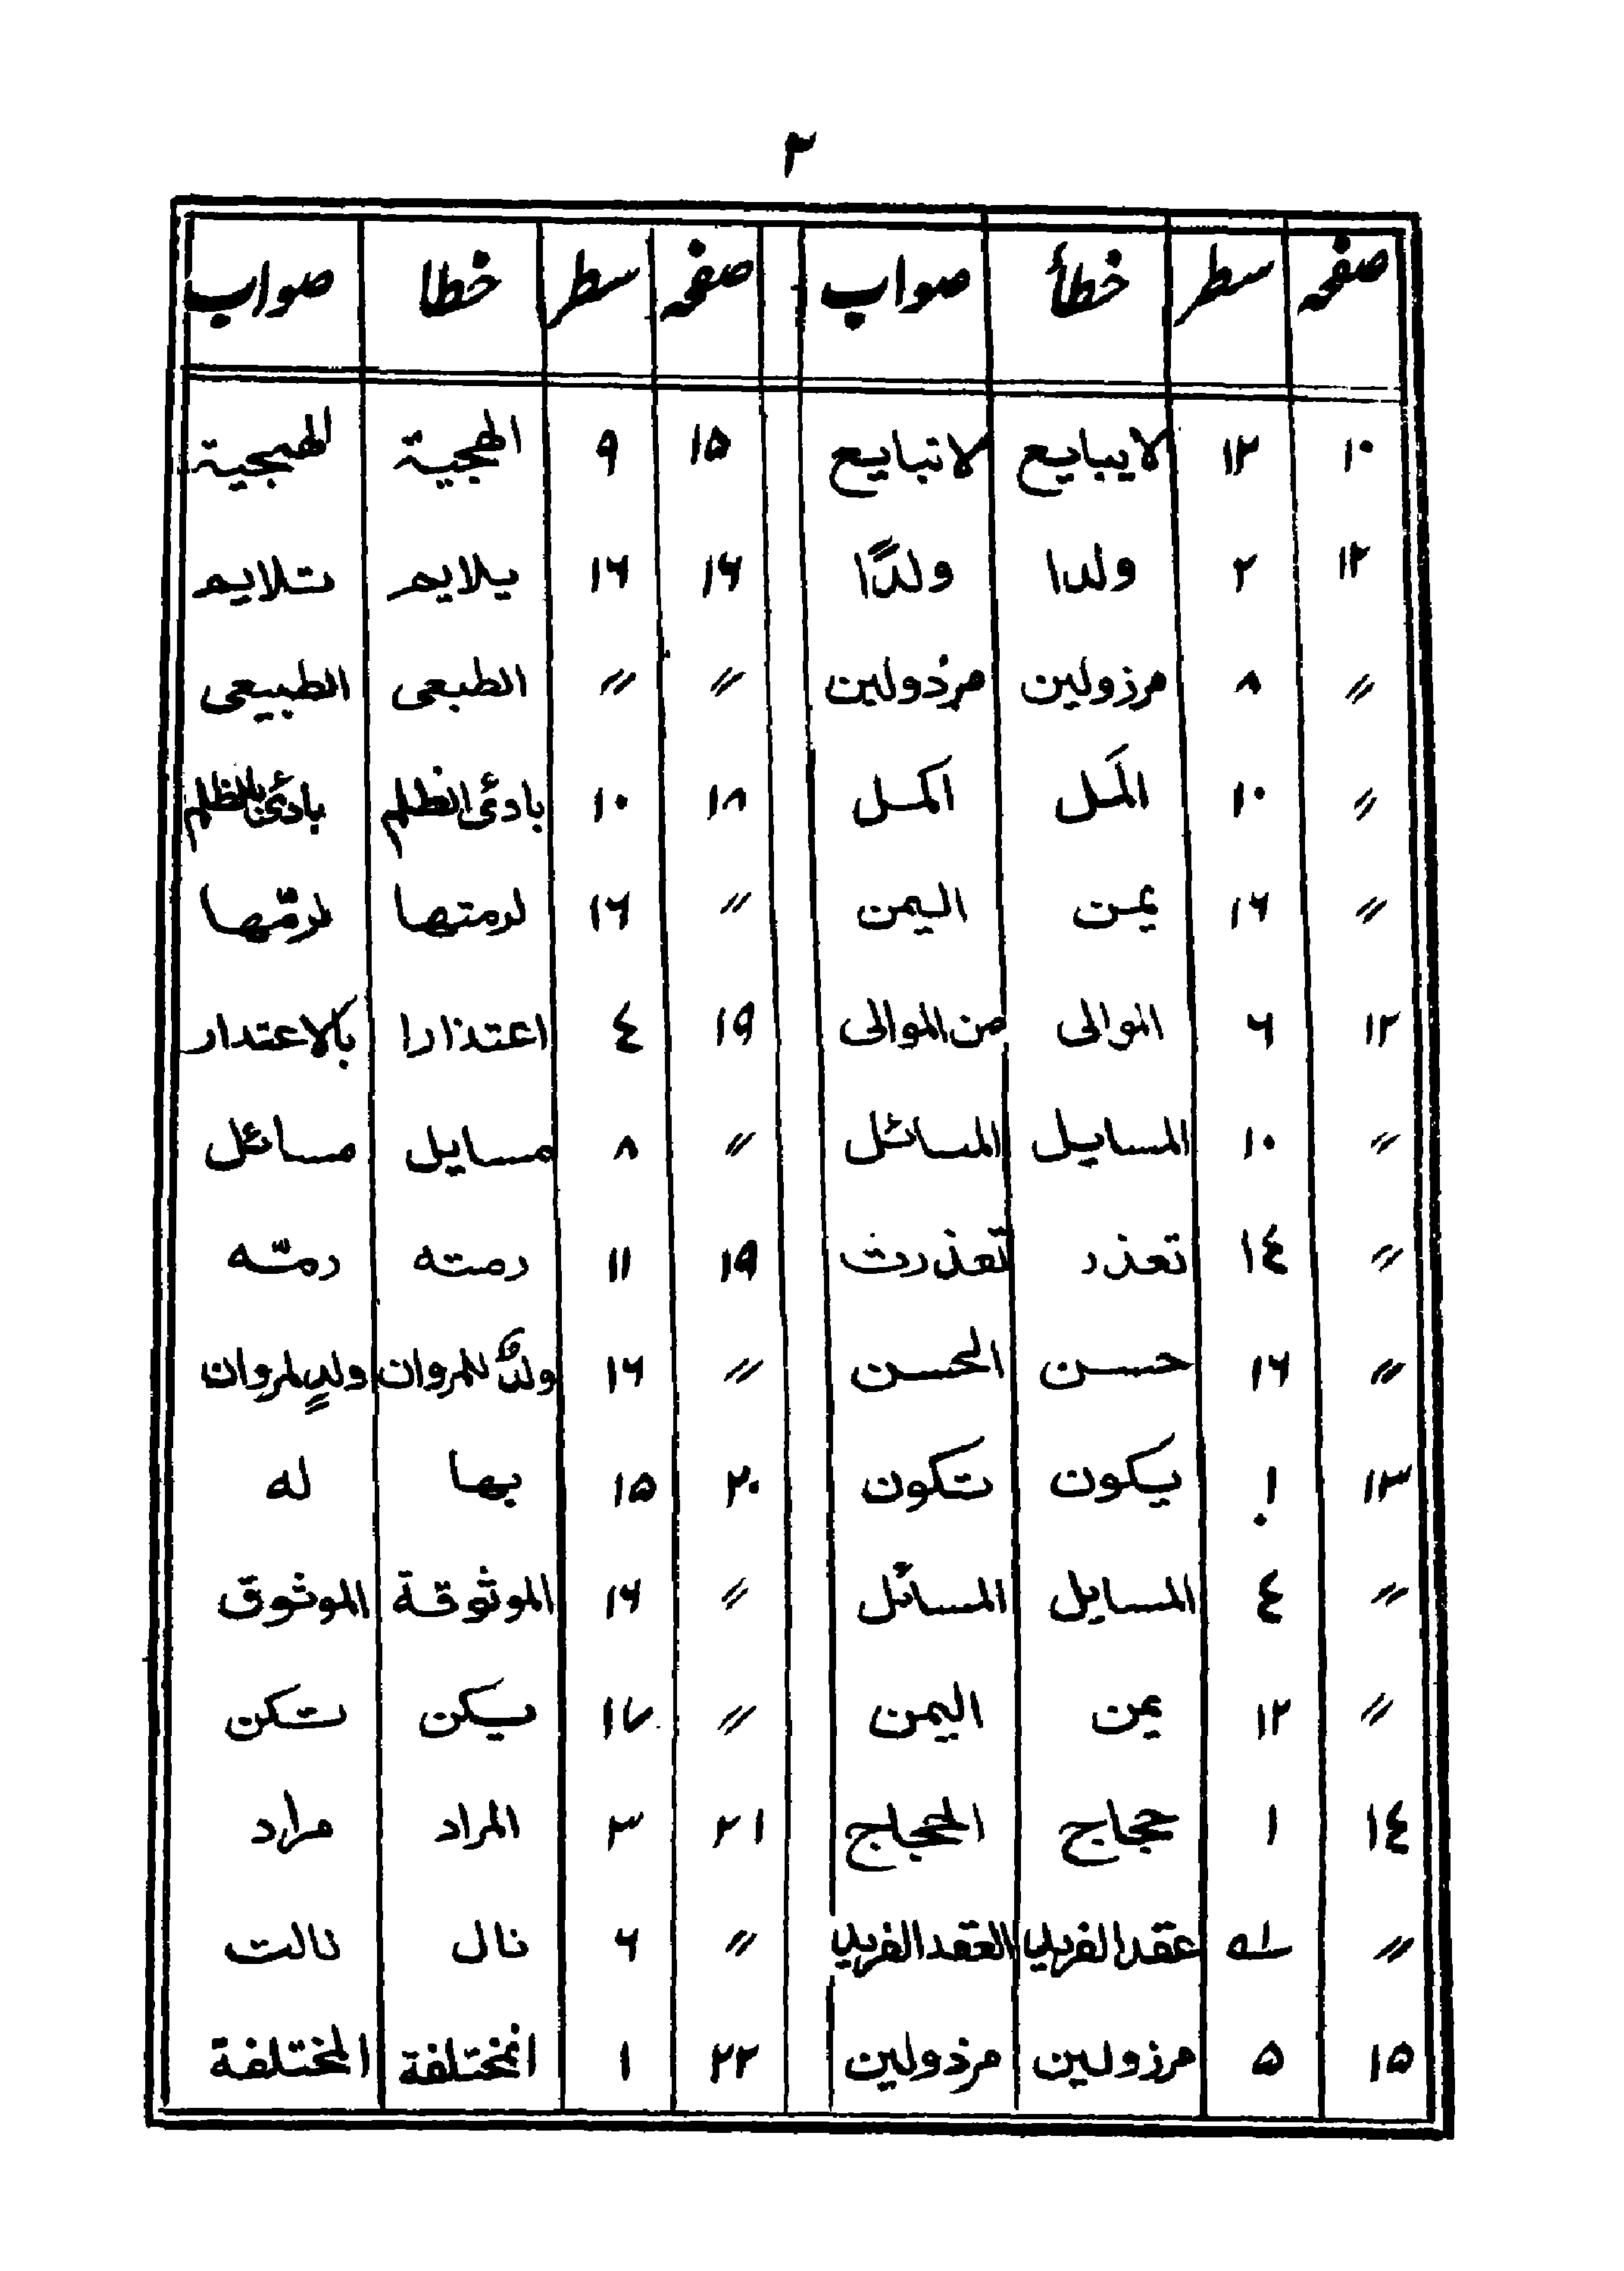 ٢
صفحہ سطر خطأ صواب صفحہ سطر خطا صواب
١٠ ١٣ لايبايع لاتبايع ١٥ ٩ الهجية الهمجية
١٢ ٢ ولدا ولدًا ١٦ ١٦ يلايم تلايم
〃 ٨ مرزولين مرذولين 〃 〃 الطبعى الطبيعى
〃 ١٠ المَل اكمل ١٨ ١٠ بادئ الظلم بادئ بالظلم
〃 ١٦ يمن اليمن 〃 ١٦ لرمتها لرمّها
١٢ ٦ الموالى من الموالى ١٩ ٤ اعتذارا بالاعتدار
〃 ١٠ المسايل المسائل 〃 ٨ مسايل مسائل
〃 ١٤ تعذر تعذرت ١٩ ١١ رمته رمّته
〃 ١٦ حسن الحسن 〃 ١٦ ولدٌ للمروان ولدٍ لمروان
١٣ ١ يكون تكون ٢٠ ١٥ بها له
〃 ٤ المسايل المسائل 〃 ١٦ الموثوقة الموثوق
〃 ١٢ يمن اليمن 〃 ١٧ يكن تكن
١٤ ١ حجاج الحجاج ٢١ ٣ المراد مراد
〃 عقد الفريد العقد الفريد 〃 ٦ نال نالت
١٥ ٥ مرزولين مرذولين ٢٢ ١ انمختلفة المختلفة